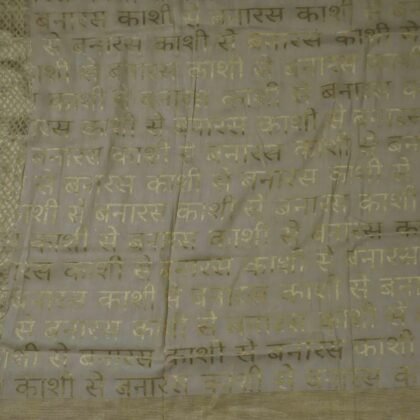 बनारस काशी से
बनारस काशी से बनारस काशी से
काशी से बनारस काशी से बनारस
काशी से बनारस काशी से बनारस
बनारस काशी से बनारस काशी से बनारस
बनारस काशी से बनारस काशी से
से बनारस काशी से बनारस काशी
काशी से बनारस काशी से बनारस काशी
काशी से बनारस काशी से बनारस
बनारस काशी से बनारस काशी से बनारस
बनारस काशी से बनारस काशी से
से बनारस काशी से बनारस काशी
काशी से बनारस काशी से बनारस काशी
काशी से बनारस काशी से बनारस